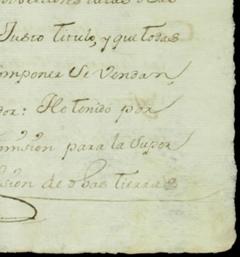 Justo titulo, y que todas
imponer se vendan,
dor: He tenido por
mision para la Super
sion de dhas tierras